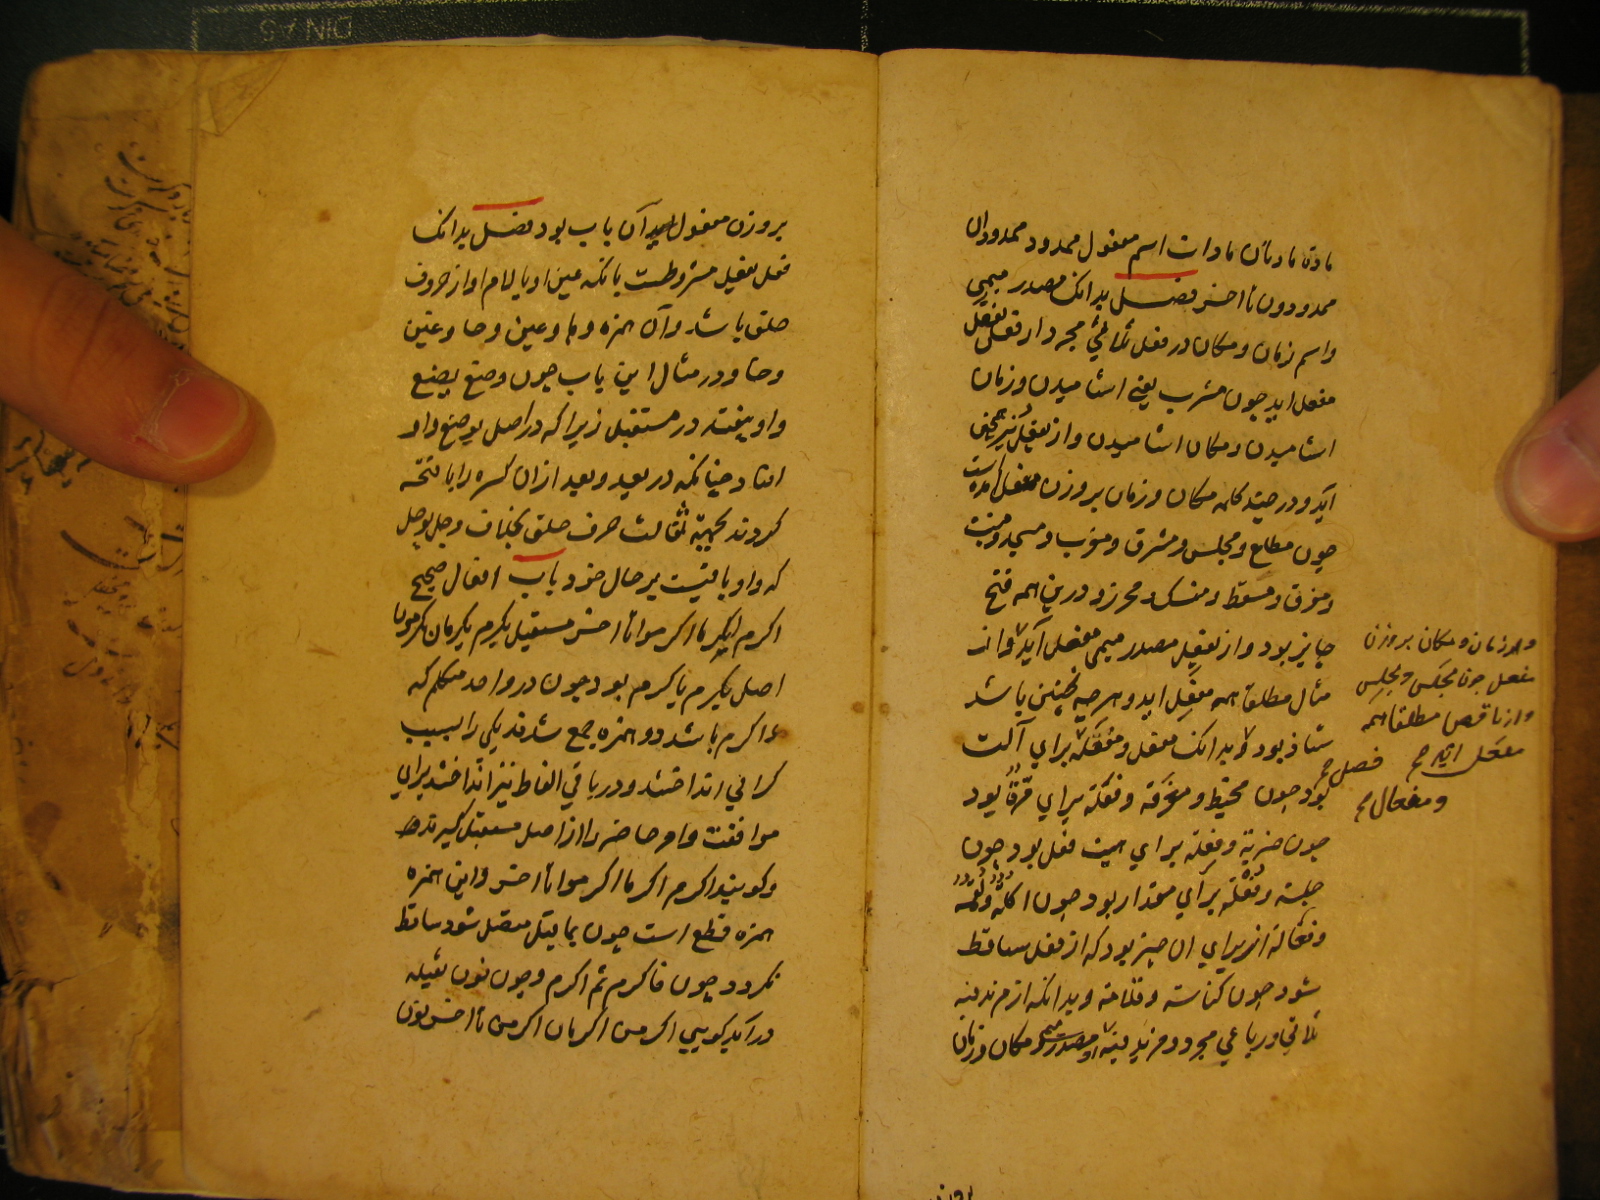 مادة مادتان مادات اسم مفعول ممدود ممدودان
ممدودون تا اخر فصل بدانك مصدر میمی
واسم زمان ومکان در فعل ثلاثي مجرد از فعل یفعل
مفعل اید چون مشرب یعنے اشامیدن وزمان
اشامیدن ومکان اشامیدن واز یفعل نیز همچنین
آید ودر چند کلمه مکان وزمان بر وزن مفعل آمده است
چون مطلع ومجلس ومشرق ومغرب ومسجد ومنبت
ومفرق ومسقط ومنسك ومجزر ودرین همه فتح
جایز بود واز یفعل مصدر میمی مفعل آید واز
مثال مطلقا همه مفعل اید وهرچه نه چنین باشد
شاذ بود بدانك مفعل ومفعلة برای آلت
بود چون مخیط ومغرفة وفعلة برای مرة بود
چون ضربة وفعلة برای هیئت فعل بود چون
جلسة وفعلة برای مقدار بود چون اکلة ولقمة
وفعالة از برای ان چیز بود که از فعل ساقط
شود چون کناسة وقلامة وبدانکه از مزید فیه
ثلاثی ورباعي مجرد ومزید فیه مصدر میمی ومکان وزمان
واسم زمان ومکان بر وزن
مفعل چون مجلس ومجلس
واز ناقص مطلقا همه
مفعل اید
فصل
ومفعال
بر وزن مفعول آن باب بود فصل بدانك
فعل یفعل مشروطست بانکه عین او یا لام او از حروف
حلق باشد وآن همزه وها وعین وحا وغین
وخا ودر مثال این باب چون وضع یضع
واو بیفتد در مستقبل زیرا که در اصل یوضع واو
افتاد چنانکه در یعد وبعد ازان کسره را با فتحه
کردند بجهة ثقالت حرف حلق بخلاف وجل یوجل
که واو باقیست بر حال خود باب افعال صحیح
اکرم اکرما اکرموا تا اخر مستقبل یکرم یکرمان یکرمون
اصل یکرم یاکرم بود چون در واحد متکلم که
ءاکرم باشد دو همزه جمع شدند یکی را بسبب
گرانی انداختند ودر باقي الفاظ نیز انداختند برای
موافقت وامر حاضر را از اصل مستقبل گیرند
وگویند اکرم اکرما اکرموا تا اخر واین همزه
همزه قطع است چون بماقبل متصل شود ساقط
نگردد چون فاکرم ثم اکرم وچون نون ثقیله
درآید گویی اکرمن اکرمان اکرمن تا اخر نون